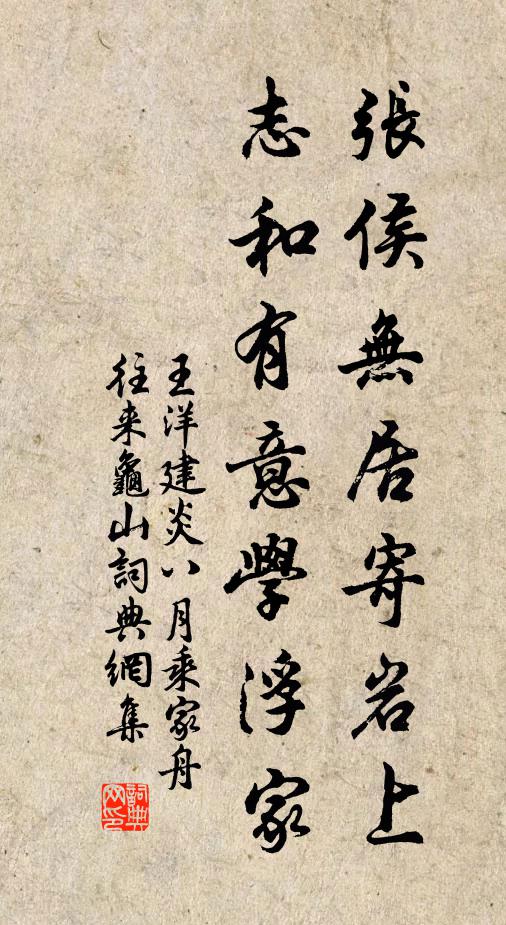 張侯無居寄岩上
志和有意學浮家
王洋建炎八月乘家舟
往来龜山詞典網集
詞典
网印